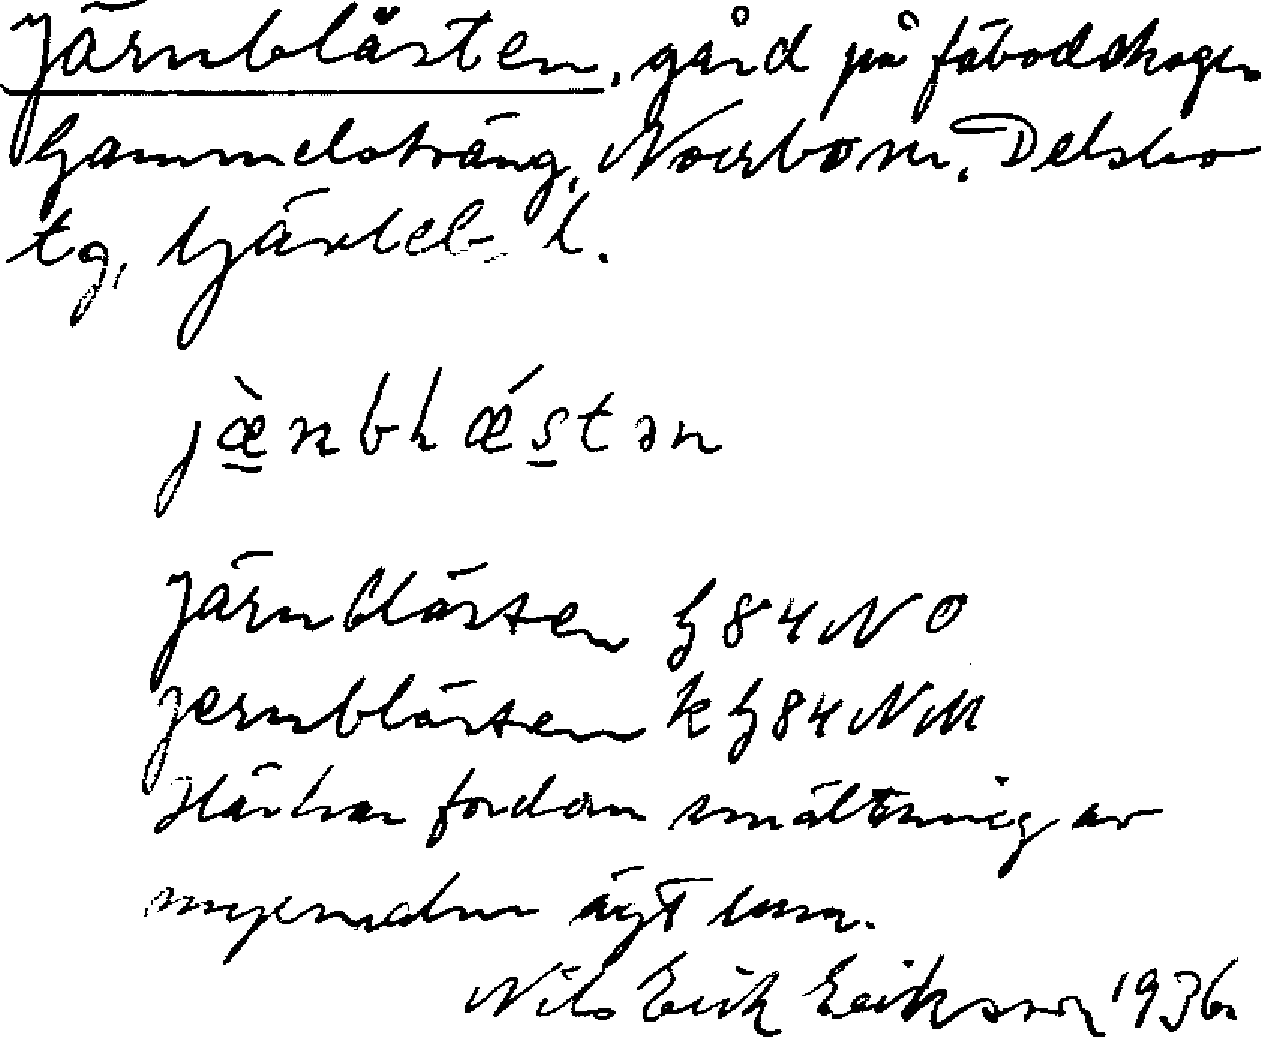 Järnblästen, gård på fäbodskogen
Gammelsträng, Norrbom, Delsbo
tg, Gävleb. l.
jæ̀nblǽstən
Järnblästen G84NO
Jernblästen k G84NM
Här har fordom smältning av
myrmalm ägt rum.
Nils Erik Eriksson 1936.